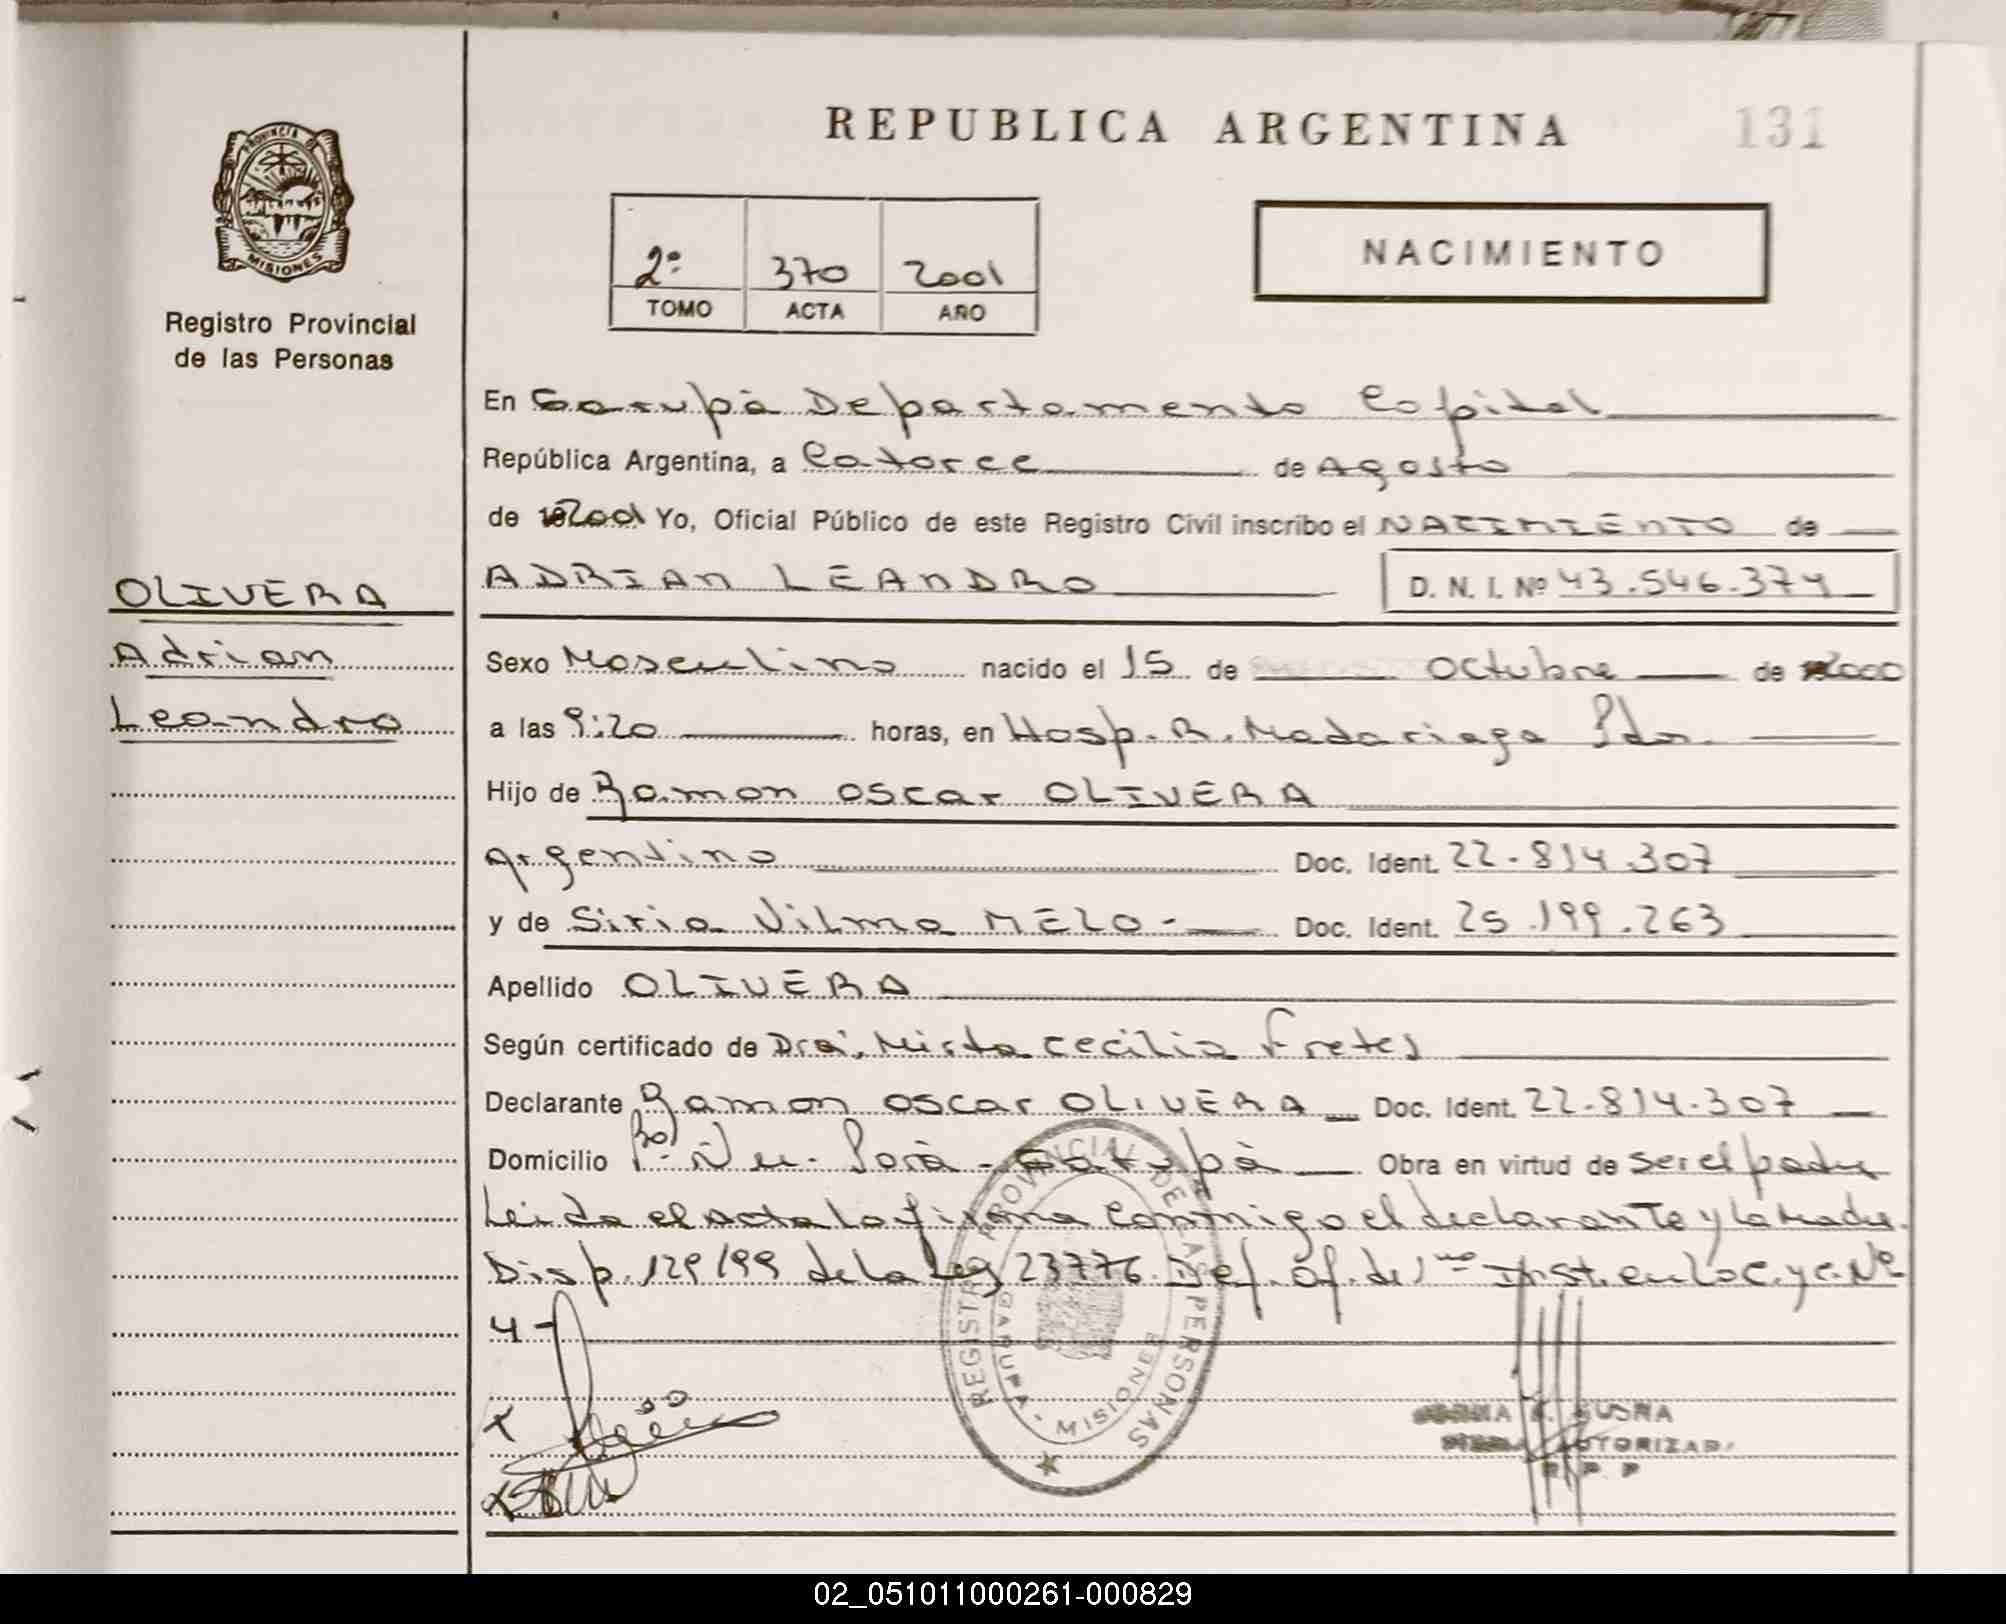 REPUBLICA ARGENTINA
131
PROVINCIA DE
MISIONES
Registro Provincial
de las Personas
2º 370 2001
TOMO ACTA AÑO
NACIMIENTO
En Garupà Departamento Capital
República Argentina, a Catorce de Agosto
de 2001 Yo, Oficial Público de este Registro Civil inscribo el NACIMIENTO de
OLIVERA
Adrian
Leandro
ADRIAN LEANDRO
D. N. I. Nº 43.546.374
Sexo Masculino nacido el 15 de Octubre de 2000
a las 9:20 horas, en Hosp. R. Madariaga Pdas.
Hijo de Ramon Oscar OLIVERA
Argentino Doc. Ident. 22.814.307
y de Siria Vilma MELO - Doc. Ident. 25.199.263
Apellido OLIVERA
Según certificado de Dra. Mirta Cecilia Fretes
Declarante Ramon Oscar OLIVERA Doc. Ident. 22.814.307
Domicilio Bº Ñu-Porà - Garupà Obra en virtud de ser el padre
Leida el Acta la firma conmigo el declarante y la madre.
Disp. 129/99 de la Ley 23776. Def. Of. de 1ra Inst. en Loc. y c. Nº
4 -
REGISTRO PROVINCIAL DE LAS PERSONAS
GARUPA - MISIONES
R. P. P
02_051011000261-000829